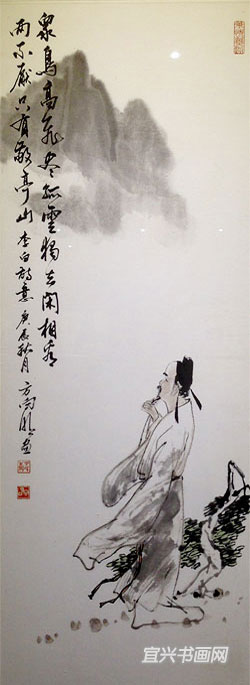 眾鳥高飛盡孤雲獨去閑相看
兩不厭只有敬亭山 李白詩意 庚辰秋月 方
宜兴书画网